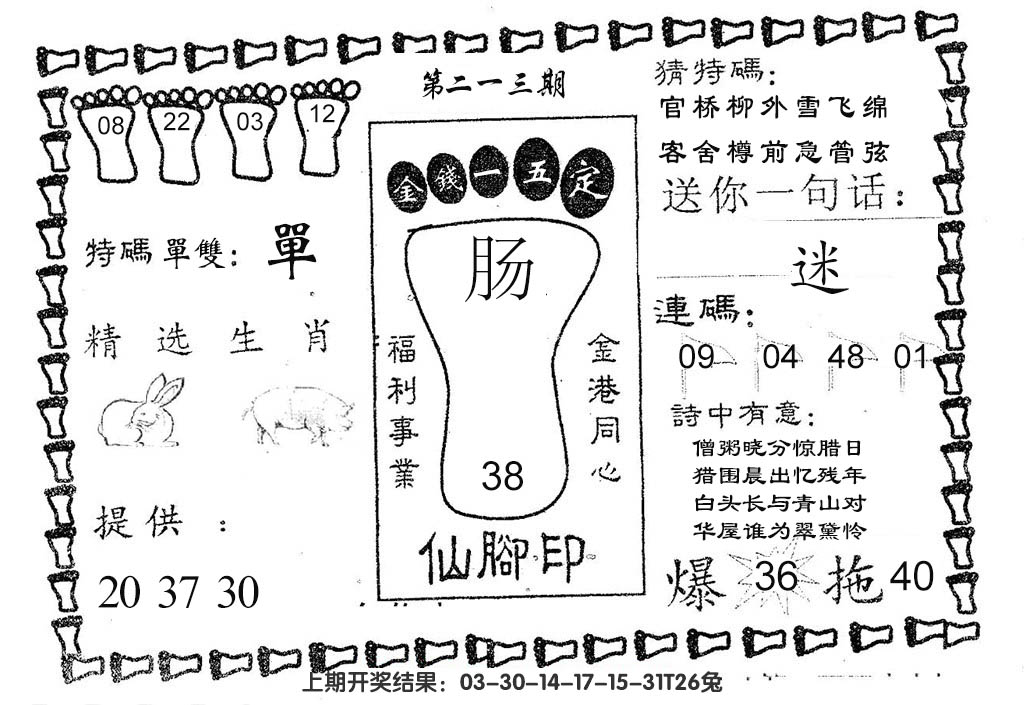 第二一三期
08 22 03 12
特碼單雙：單
精选生肖
提供：
20 37 30
金錢一五定
肠
福利事業
金港同心
38
仙腳印
猜特碼：
官桥柳外雪飞绵
客舍樽前急管弦
送你一句话：
迷
連碼：
09 04 48 01
詩中有意：
僧粥晓分惊腊日
猎围晨出忆残年
白头长与青山对
华屋谁为翠黛怜
爆 36 拖 40
上期开奖结果：03-30-14-17-15-31T26兔